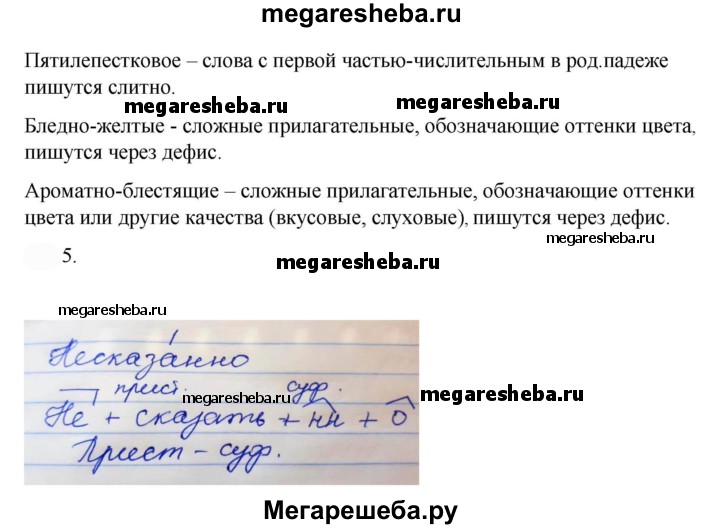 megaresheba.ru
Пятилепестковое – слова с первой частью-числительным в род.падеже
пишутся слитно.
megaresheba.ru
megaresheba.ru
Бледно-желтые - сложные прилагательные, обозначающие оттенки цвета,
пишутся через дефис.
Ароматно-блестящие – сложные прилагательные, обозначающие оттенки
цвета или другие качества (вкусовые, слуховые), пишутся через дефис.
megaresheba.ru
5.
megaresheba.ru
megaresheba.ru
Несказанно
прист. суф.
megaresheba.ru
megaresheba.ru
Не + сказать + нн + о
Прист – суф.
Мегарешеба.ру